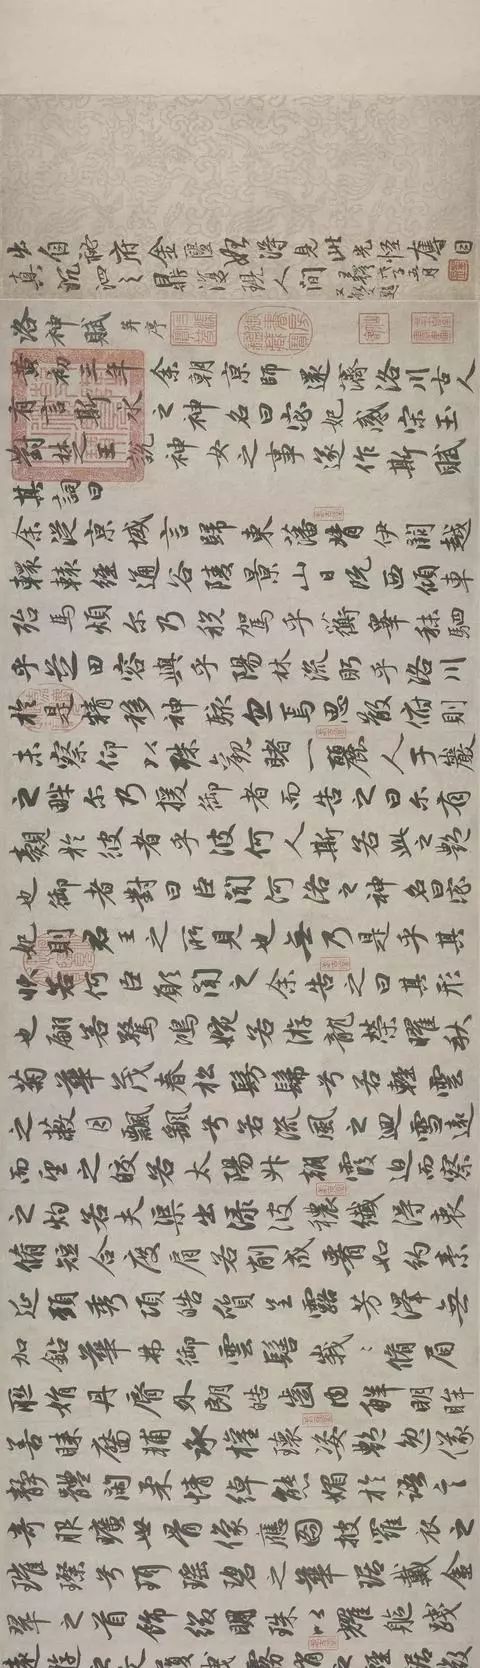 出自祕府金匱如得見此光怪奪目
真沉泗之鼎復現人間
洛神賦 并序
黃初三年余朝京師還濟洛川古人
有言斯水之神名曰宓妃感宋玉
對楚王說神女之事遂作斯賦
其詞曰
余從京域言歸東藩背伊闕越
轘轅經通谷陵景山日既西傾車
殆馬煩尔乃稅駕乎蘅皋秣駟
乎芝田容與乎陽林流眄乎洛川
於是精移神駭忽焉思散俯則
未察仰以殊觀睹一麗人于巖
之畔尔乃援御者而告之曰尔有
覿於彼者乎彼何人斯若此之艷
也御者對曰臣聞河洛之神名曰宓
妃則君王之所見也無乃是乎其
狀若何臣願聞之余告之曰其形
也翩若驚鴻婉若游龍榮曜秋
菊華茂春松髣髴兮若輕雲
之蔽月飄颻兮若流風之迴雪遠
而望之皎若太陽升朝霞迫而察
之灼若夫渠出淥波穠纖得衷
脩短合度肩若削成腰如約素
延頸秀項皓質呈露芳澤無
加鉛華弗御雲髻峩〻脩眉
聯娟丹脣外朗皓齒內鮮明眸
善睞靨輔承權瓌姿艷逸儀
靜體閑柔情綽態媚於語言
奇服曠世骨像應圖披羅衣之
璀璨兮珥瑤碧之華琚戴金
翠之首飾綴明珠以耀軀踐
遠遊之文履曳霧綃之輕裾